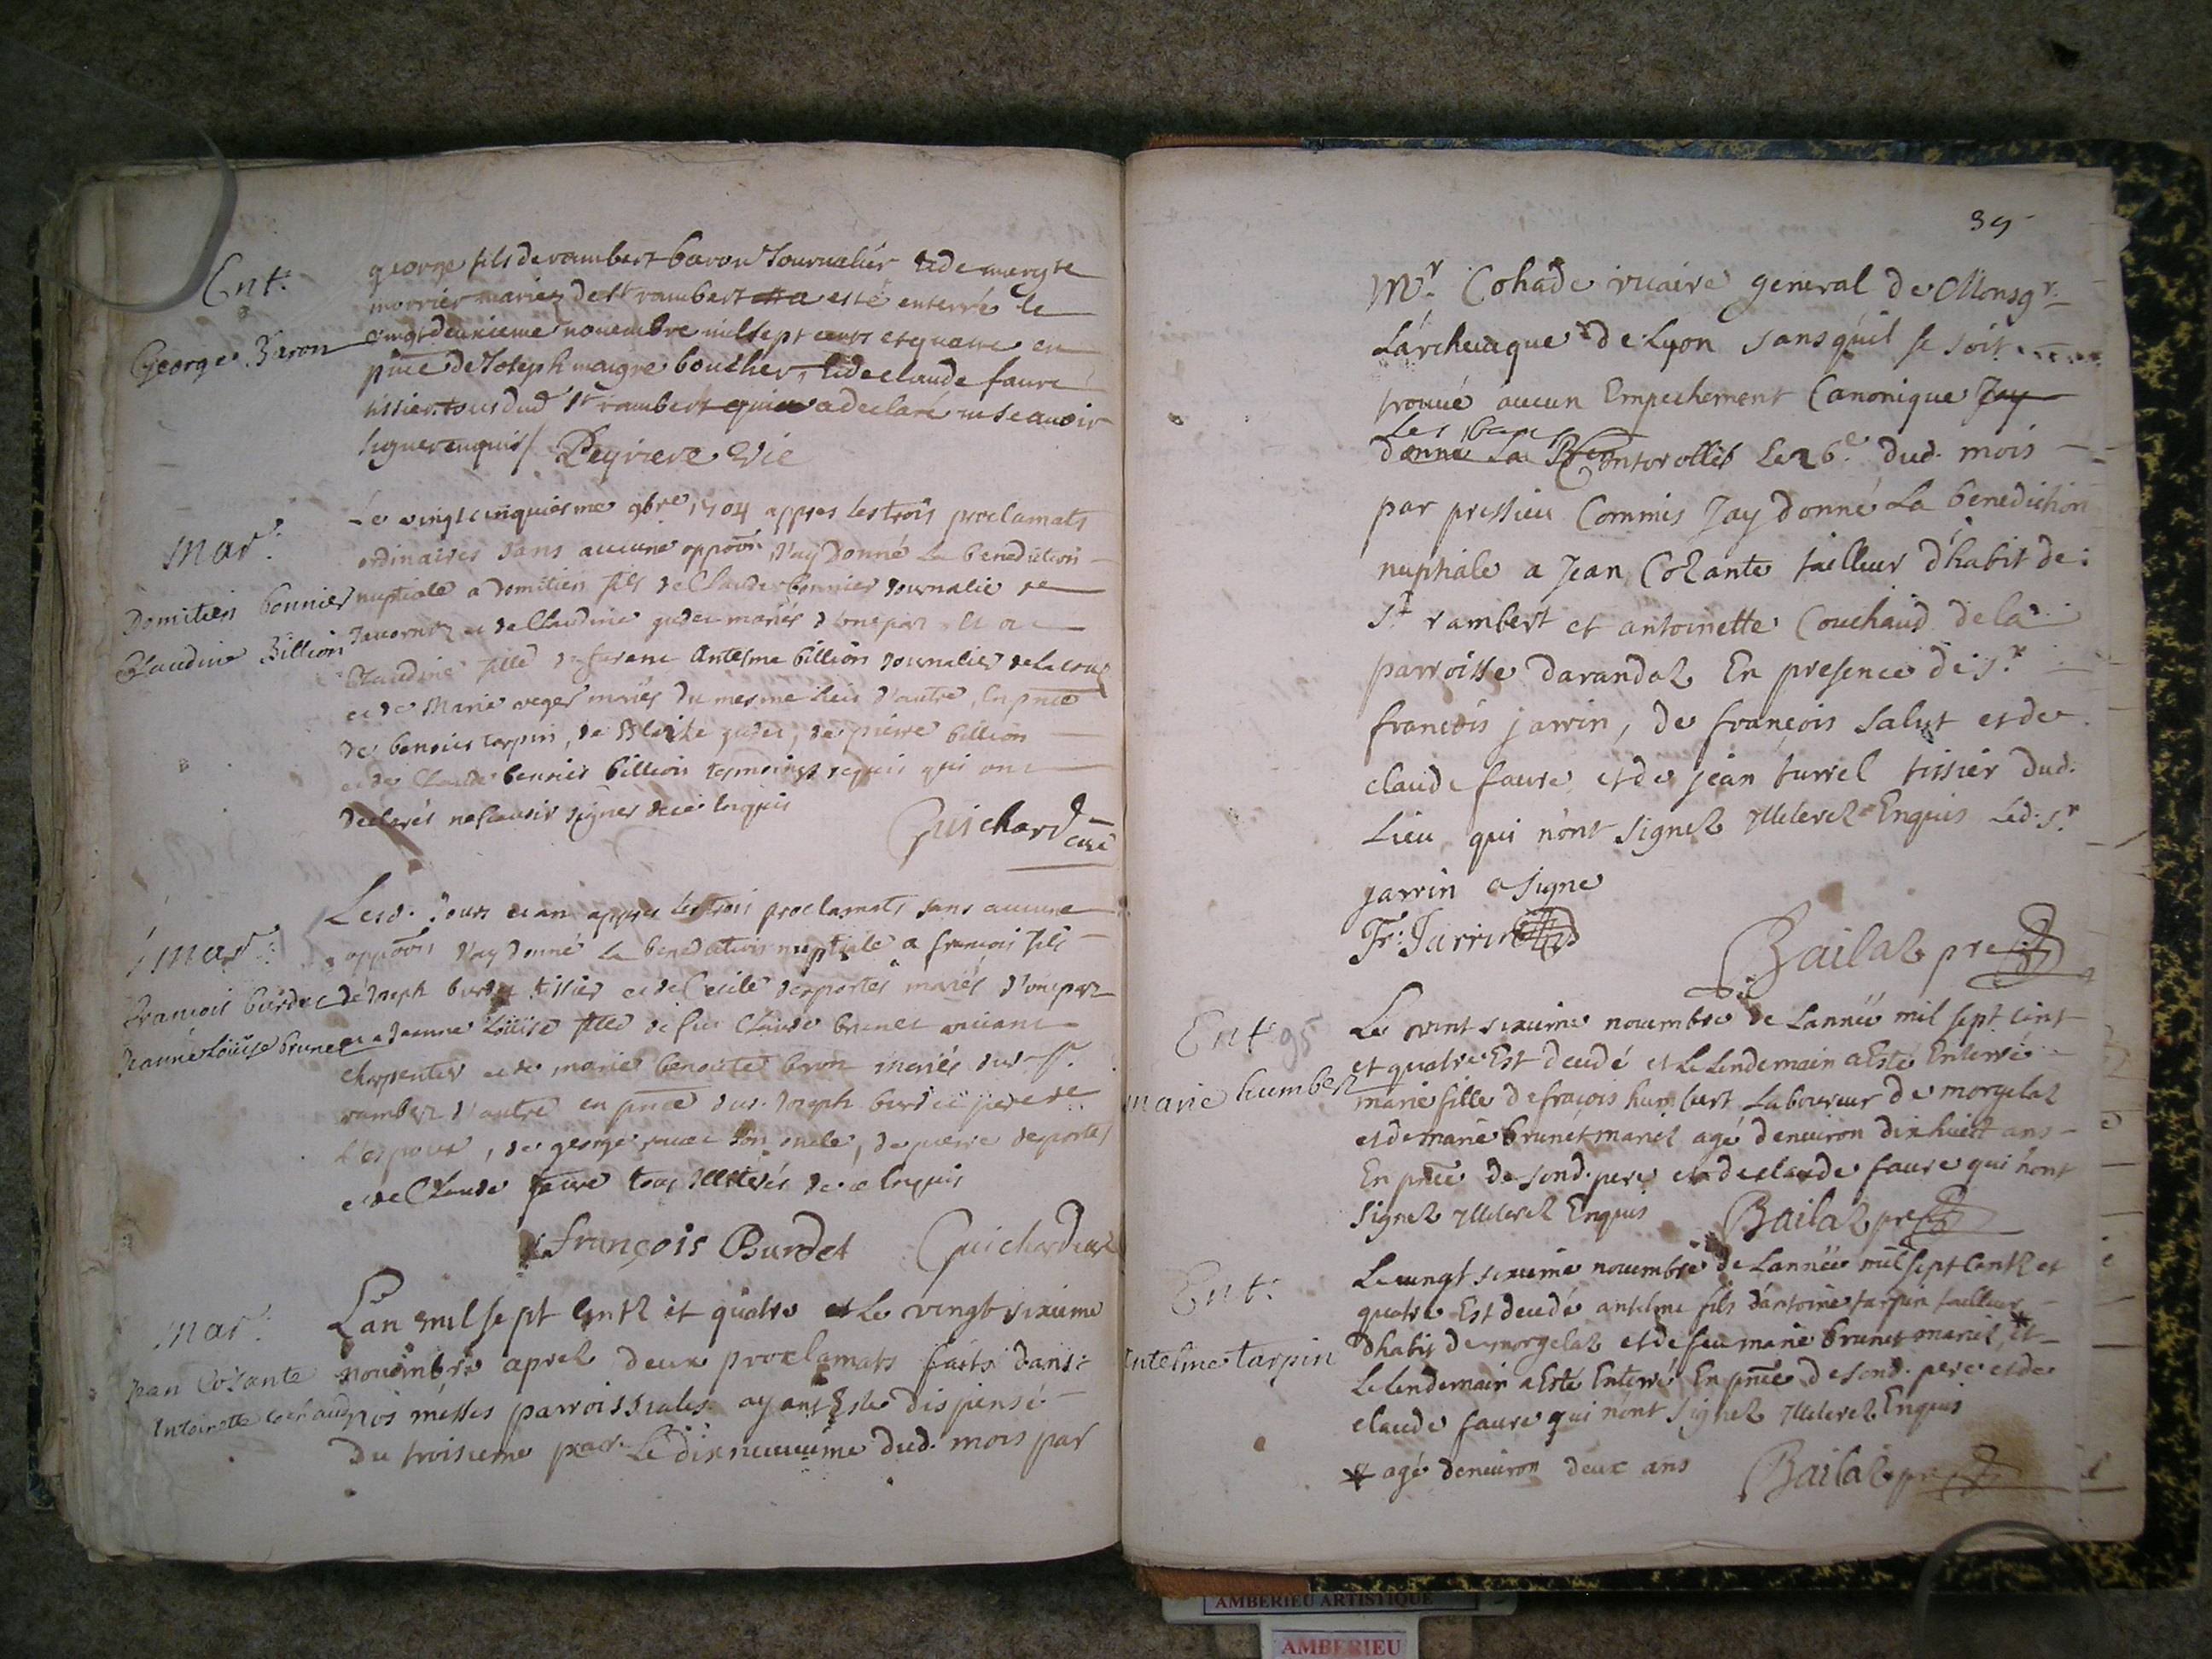 Ent.
George Baron
george fils de rambert baron Journalier & de margte
morrier mariez de St rambert a esté enterré le
vingtdeuxieme nouembre mil sept cents et quatre en
pñce de Joseph maigre boucher, & de claude faure
tissier tous dud St rambert a declaré ne scauoir
signer enquis /. Peyriere Vic
Mar.
Domitien bonnier
Claudine Billion
Le vingtcinquiesme 9bre 1704 appres les trois proclamats
ordinaires sans aucune oppoõn J'ay donné La benediction
nuptiale a Domitien fils de Claude bonnier Journalie de
Jauornoz et de Claudine gudet mariés d'une part et a
Claudine fille de Anteme billion Journalier de la
et de Marie veger mariés du mesme lieu d'autre, En pñce
de benoit tarpin, de Blaise gudet, de pierre billion
et de Claude benoist billion tesmoings requis qui ont
declarés ne scauoir signer de ce Enquis
Guichard curé
Mar.
francois burdet
Jeanne Loüise brunet
Lesd. Jours et an appres les trois proclamats sans aucune
oppoõn J'ay donné La benediction nuptiale a francois fils
de Joseph burdet tissier et de Cecile desportes mariés d'une part
et a Jeanne Loüise fille de feu Claude brunet viuant
charpentier et de marie benoite bron mariés dud St.
rambert d'autre en pñce dud. Joseph burdet pere de
L'espoux, de george son oncle, de pierre desportes
et de Claude faure tous Illiterés de ce Enquis
françois Burdet Guichard curé
Mar.
Jean Cozante
Antoinette cochaud
L'an mil sept Centz et quatre et Le vingt sixieme
nouembre aprez deux proclamats faits dans
nos messes parroissiales ayant Esté dispensé
Du troisieme par Le dixneuuieme dud. mois par
39
Mr. Cohade vicaire general de Monsgr.
Larcheueque de Lyon sans quil se soit
trouué aucun Empechement Canonique Jay
Les bans
donné La B Controllés Le 26e dud. mois
par pressieu Commis Jay donné La benediction
nuptiale a Jean Cozante tailleur d'habit de
St rambert et antoinette Couchaud de la
parroisse darandaz En presence de Sr.
francois jarrin, de françois salut et de
claude faure et de jean turrel tissier dud.
Lieu qui n'ont signez Illiterez Enquis Led. Sr.
jarrin a signé
Fr. Jarrin
Bailaz pre
Ent. 95
Marie humbert
Le vint sixieme nouembre de Lannée mil sept cent
et quatre Est decedé et Le Lendemain a Esté Enterré
marie fille de fraçois humbert Laboureur de morgelaz
et de marie brunet mariez agé denuiron dix huict ans
En pñce de sond. pere et de claude faure qui n'ont
signez Illiterez Enquis Bailaz pre
Ent.
Antelme tarpin
Le vingt sixieme nouembre de Lannée mil sept Centz et
quatre Est decedé antelme fils d'antoine tarpin tailleur
Dhabit de morgelaz et de feu marie brunet mariez * et
Le Lendemain a Esté Enterré En pñce de sond. pere et de
claude faure qui n'ont signez Illiterez Enquis
* agé denuiron deux ans Bailaz pre
AMBERIEU ARTISTIQUE
AMBERIEU